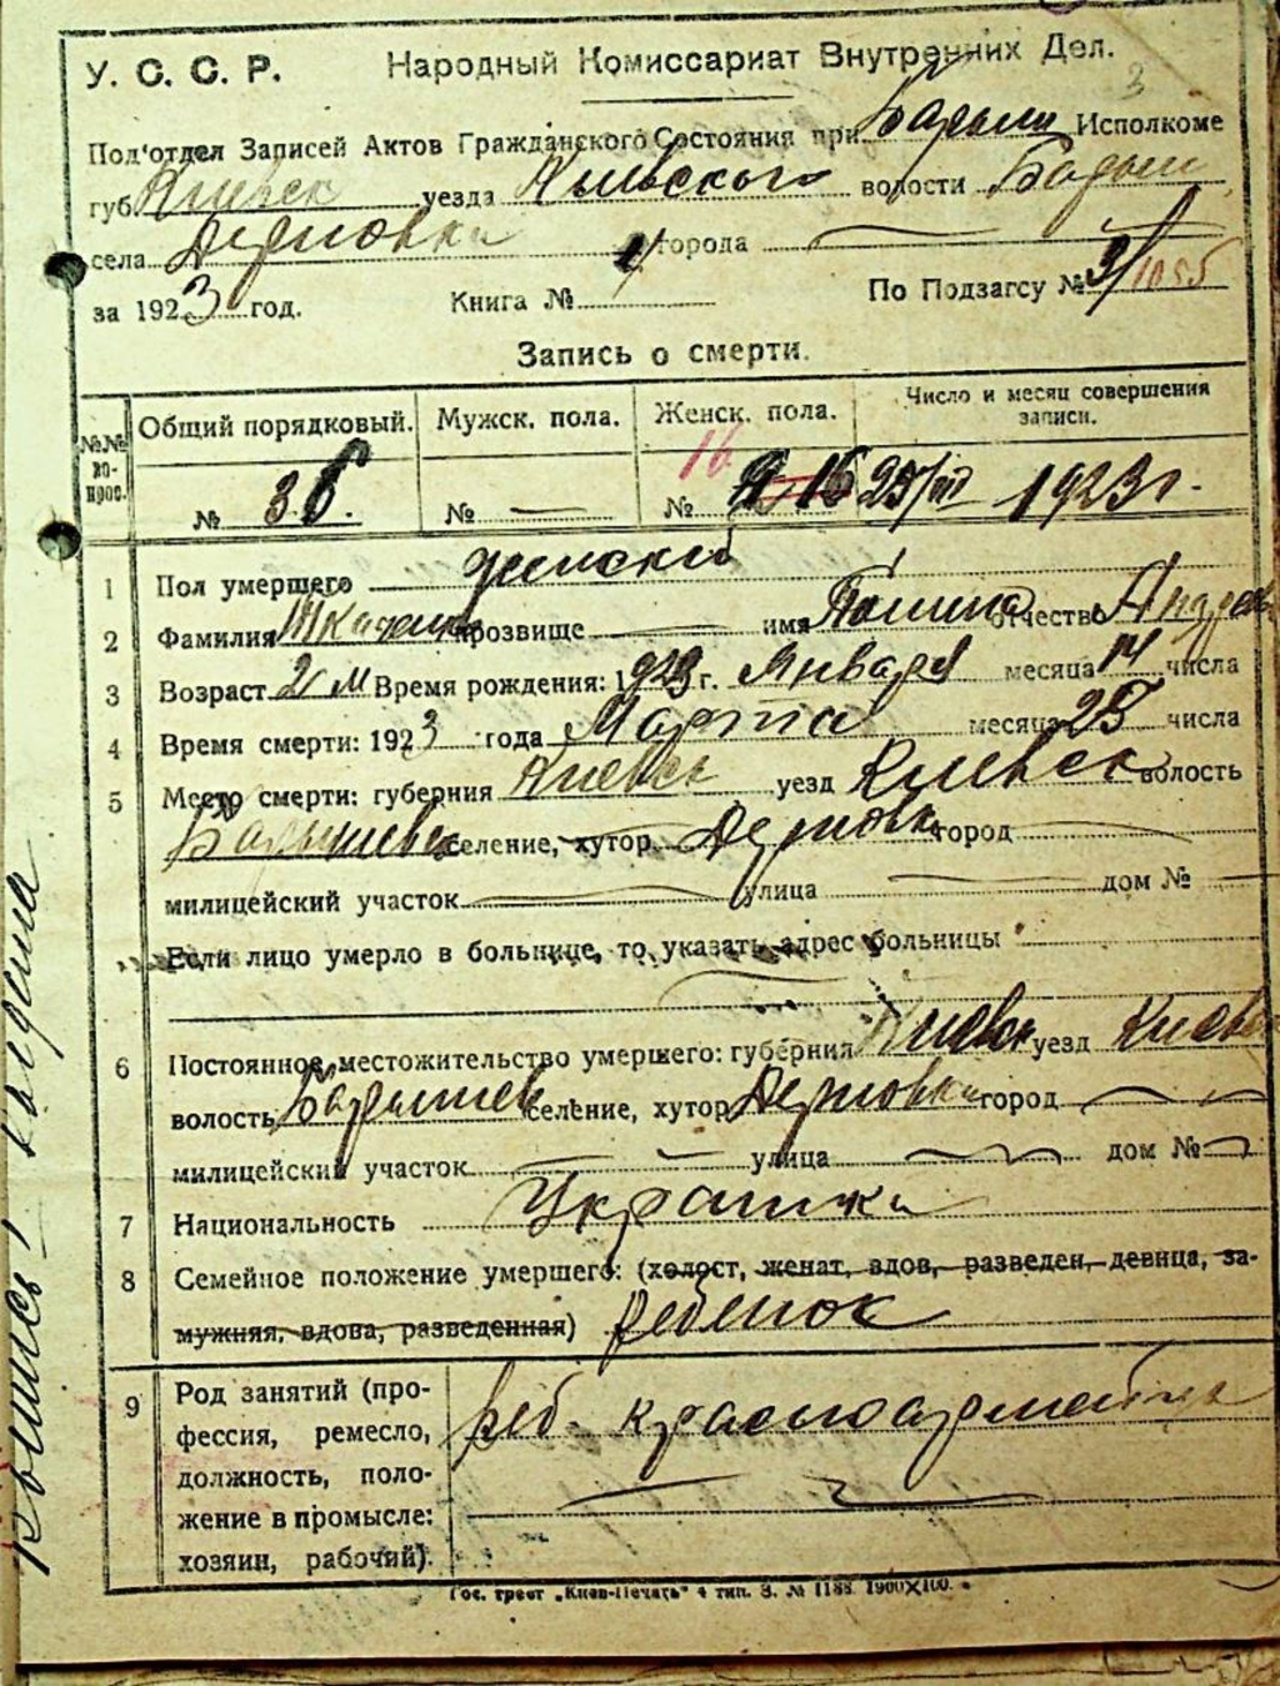 У. С. С. Р. Народный Комиссариат Внутренних Дел.
3
Под'отдел Записей Актов Гражданского Состояния при Барыш Исполкоме
губ. Киевск уезда Киевского волости Барыш
села Дерновка города
за 1923 год. Книга № По Подзагсу № 3/1055
Запись о смерти.
№№ во-прос. Общий порядковый. Мужск. пола. Женск. пола. Число и месяц совершения записи.
16
№ 36. № — № 16 25/III 1923 г.
1 Пол умершего женский
2 Фамилия Ткаченко прозвище — имя отчество Андрев
3 Возраст 2 м Время рождения: 1923 г. Января месяца 14 числа
4 Время смерти: 1923 года Марта месяца 25 числа
5 Место смерти: губерния Киевск уезд Киевск волость
Барышевск селение, хутор Дерновк город
милицейский участок улица дом №
Если лицо умерло в больнице, то указать адрес больницы
6 Постоянное местожительство умершего: губерния Киевск уезд Киевс
волость Барышев селение, хутор Дерновка город
милицейский участок улица дом №
7 Национальность Украинка
8 Семейное положение умершего: (холост, женат, вдов, разведен, девица, за-
мужняя, вдова, разведенная) Ребенок
9 Род занятий (про- реб. красноармейца
фессия, ремесло,
должность, поло-
жение в промысле:
хозяин, рабочий).
Гос. трест „Киев-Печать" 4 тип. З. № 1188. 1900×100.